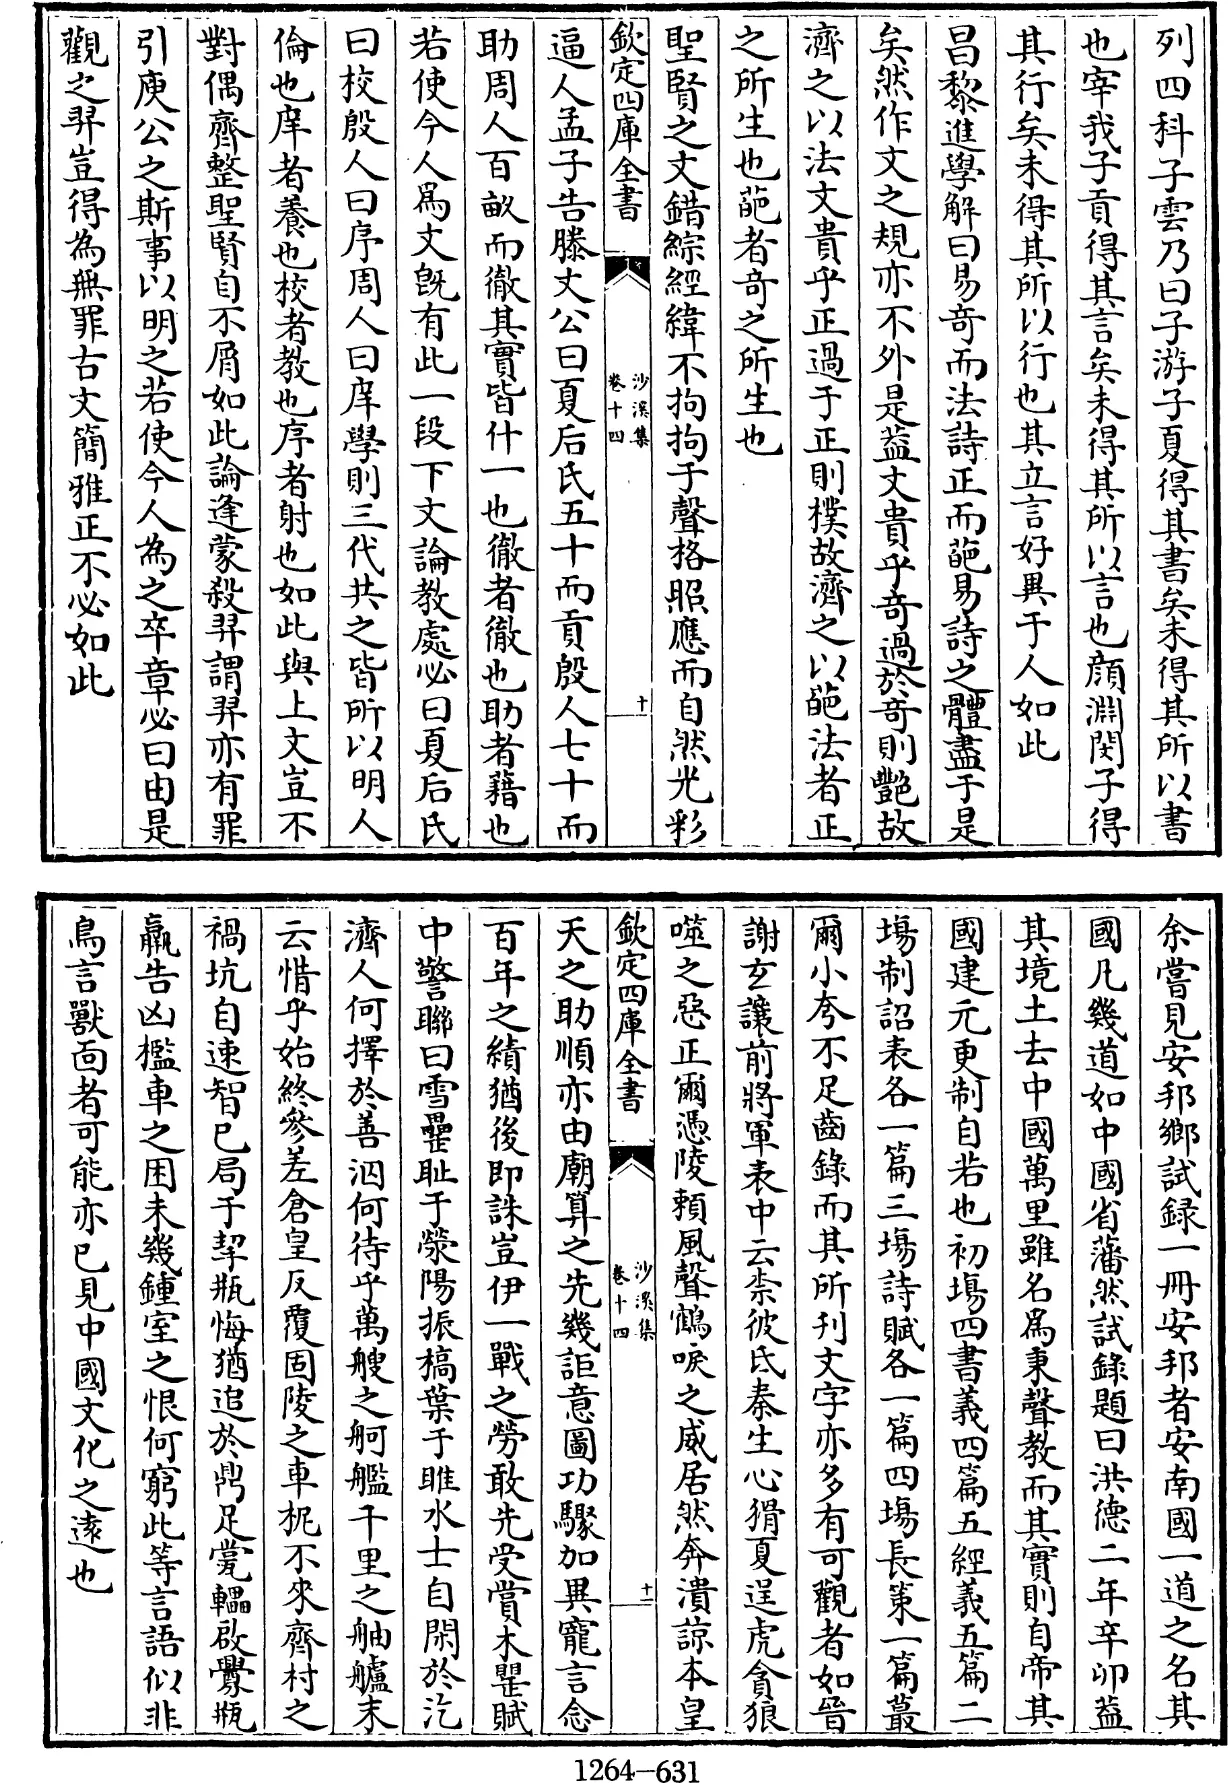 列四科子雲乃曰子游子夏得其書矣未得其所以書
也宰我子貢得其言矣未得其所以言也顔淵閔子得
其行矣未得其所以行也其立言好異于人如此
昌黎進學解曰易奇而法詩正而葩易詩之體盡于是
矣然作文之規亦不外是葢文貴乎奇過於奇則艷故
濟之以法文貴乎正過于正則樸故濟之以葩法者正
之所生也葩者奇之所生也
聖賢之文錯綜經緯不拘拘于聲格照應而自然光彩
欽定四庫全書
沙溪集
卷十四
十
逼人孟子告滕文公曰夏后氏五十而貢殷人七十而
助周人百畝而徹其實皆什一也徹者徹也助者藉也
若使今人爲文既有此一段下文論教處必曰夏后氏
曰校殷人曰序周人曰庠學則三代共之皆所以明人
倫也庠者養也校者教也序者射也如此與上文豈不
對偶齊整聖賢自不屑如此論逢蒙殺羿謂羿亦有罪
引庾公之斯事以明之若使今人為之卒章必曰由是
觀之羿豈得為無罪古文簡雅正不必如此
余嘗見安邦鄉試録一冊安邦者安南國一道之名其
國凡幾道如中國省藩然試錄題曰洪德二年辛卯葢
其境土去中國萬里雖名爲秉聲教而其實則自帝其
國建元更制自若也初塲四書義四篇五經義五篇二
塲制詔表各一篇三塲詩賦各一篇四塲長策一篇蕞
爾小夸不足齒錄而其所刊文字亦多有可觀者如晉
謝玄讓前將軍表中云柰彼氐秦生心猾夏逞虎貪狼
噬之惡正爾憑陵頼風聲鶴唳之威居然奔潰諒本皇
欽定四庫全書
沙溪集
卷十四
十一
天之助順亦由廟算之先幾詎意圖功驟加異寵言念
百年之績猶後即誅豈伊一戰之勞敢先受賞木罌賦
中警聯曰雪罍耻于滎陽振槁葉于睢水士自閑於汔
濟人何擇於善泅何待乎萬艘之舸艦千里之舳艫末
云惜乎始終參差倉皇反覆固陵之車柅不來齊村之
禍坑自速智已局于挈瓶悔猶追於鼎足甍轀啟釁瓶
羸告凶檻車之困未幾鍾室之恨何窮此等言語似非
鳥言獸面者可能亦已見中國文化之遠也
1264—631